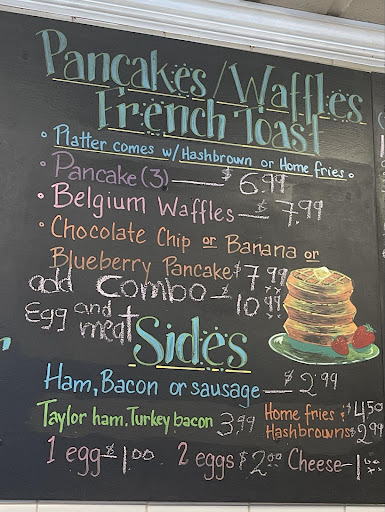 Pancakes/Waffles
French Toast
• Platter comes w/ Hashbrown or Home fries •
• Pancake (3) — $6.99
• Belgium Waffles — $7.99
• Chocolate Chip or Banana or
Blueberry Pancake $7.99
add combo — 10.99
Egg and
meat
Sides
Ham, Bacon or sausage — $2.99
Taylor ham. Turkey bacon 3.99
Home fries $4.50
Hashbrowns $2.99
1 egg — $1.00 2 eggs $2.00 Cheese — 1.